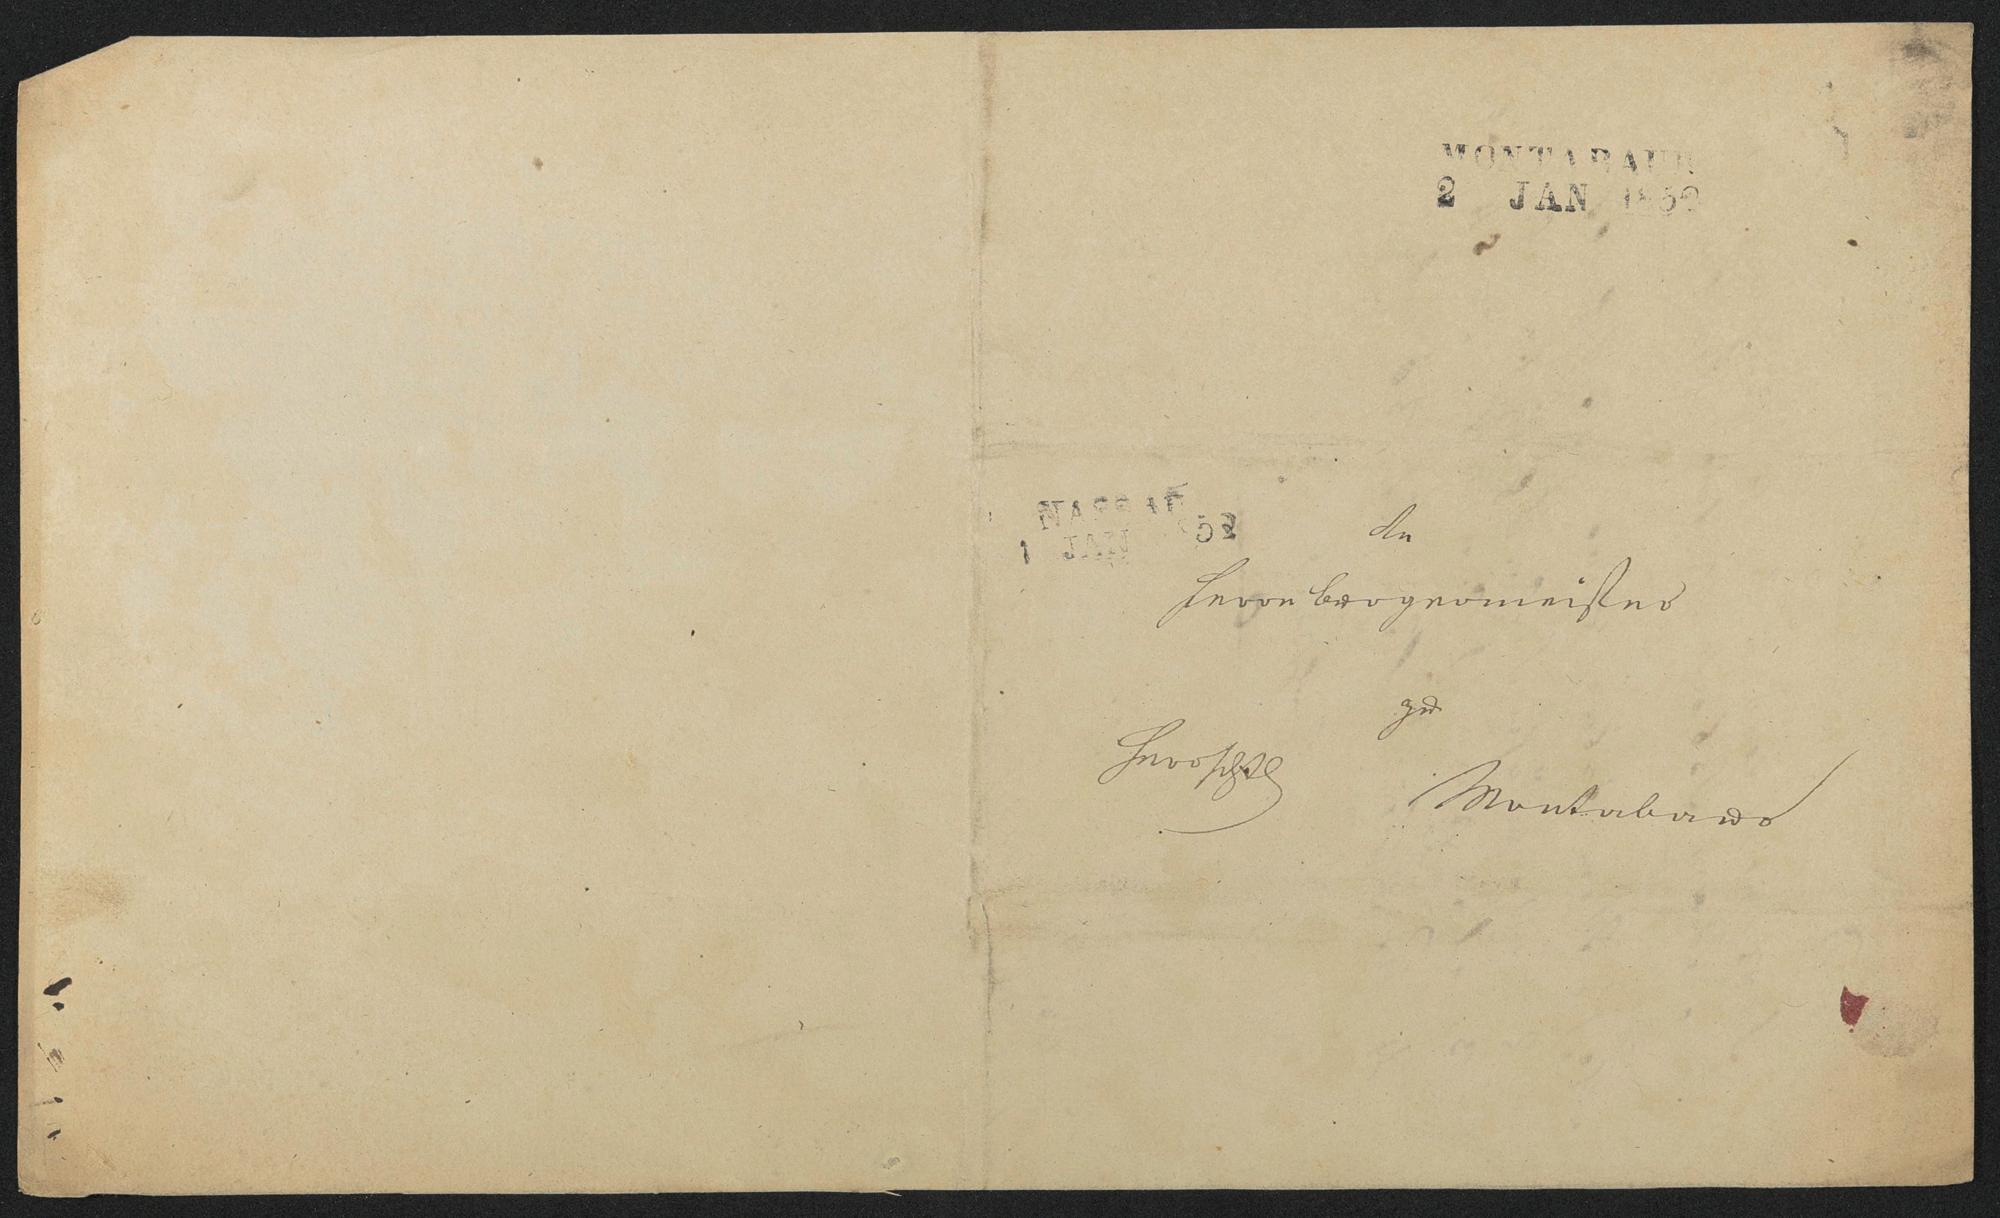 MONTABAUR
2 JAN 1852
NASSAU
1 JAN 1852
An
Herrn Bürgermeister
zu
Herschftl
Montabaur